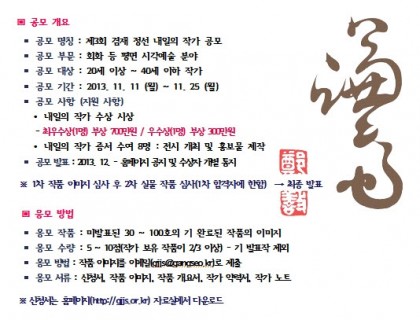 ▣ 공모 개요
▪ 공모 명칭 : 제3회 겸재 정선 내일의 작가 공모
▪ 공모 부문 : 회화 등 평면 시각예술 분야
▪ 공모 대상 : 20세 이상 ~ 40세 이하 작가
▪ 공모 기간 : 2013. 11. 11 (월) ~ 11. 25 (월)
▪ 공모 사항 (지원 사항)
• 내일의 작가 수상 시상
- 최우수상(1명) 부상 700만원 / 우수상(1명) 부상 300만원
• 내일의 작가 증서 수여 8명 : 전시 개최 및 홍보물 제작
▪ 공모 발표 : 2013. 12. - 홈페이지 공지 및 수상자 개별 통지
※ 1차 작품 이미지 심사 후 2차 실물 작품 심사(1차 합격자에 한함) → 최종 발표
▣ 응모 방법
▪ 응모 작품 : 미발표된 30 ~ 100호의 기 완료된 작품의 이미지
▪ 응모 수량 : 5 ~ 10점(작가 보유 작품이 2/3 이상) - 기 발표작 제외
▪ 응모 방법 : 작품 이미지를 이메일(gjjs@gangseo.kr)로 제출
▪ 응모 서류 : 신청서, 작품 이미지, 작품 개요서, 작가 약력서, 작가 노트
※ 신청서는 홈페이지(http://gjjs.or.kr) 자료실에서 다운로드